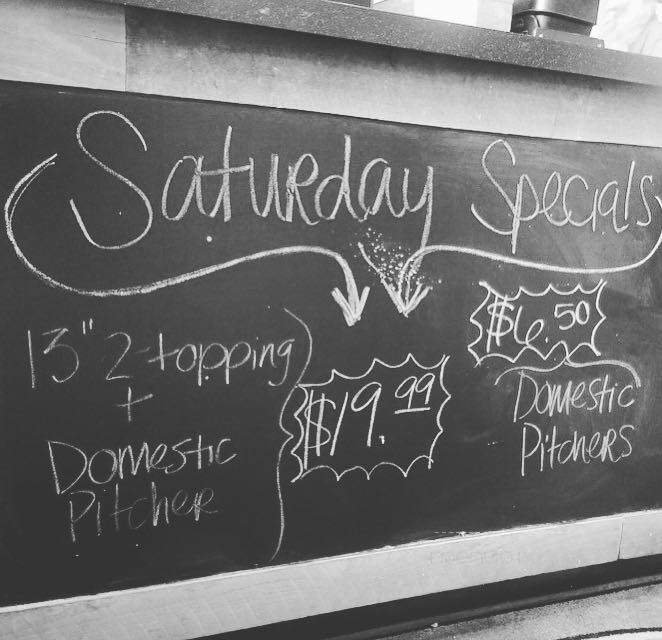 Saturday Specials
13" 2-topping
+
Domestic
Pitcher
$19.99
$6.50
Domestic
Pitchers